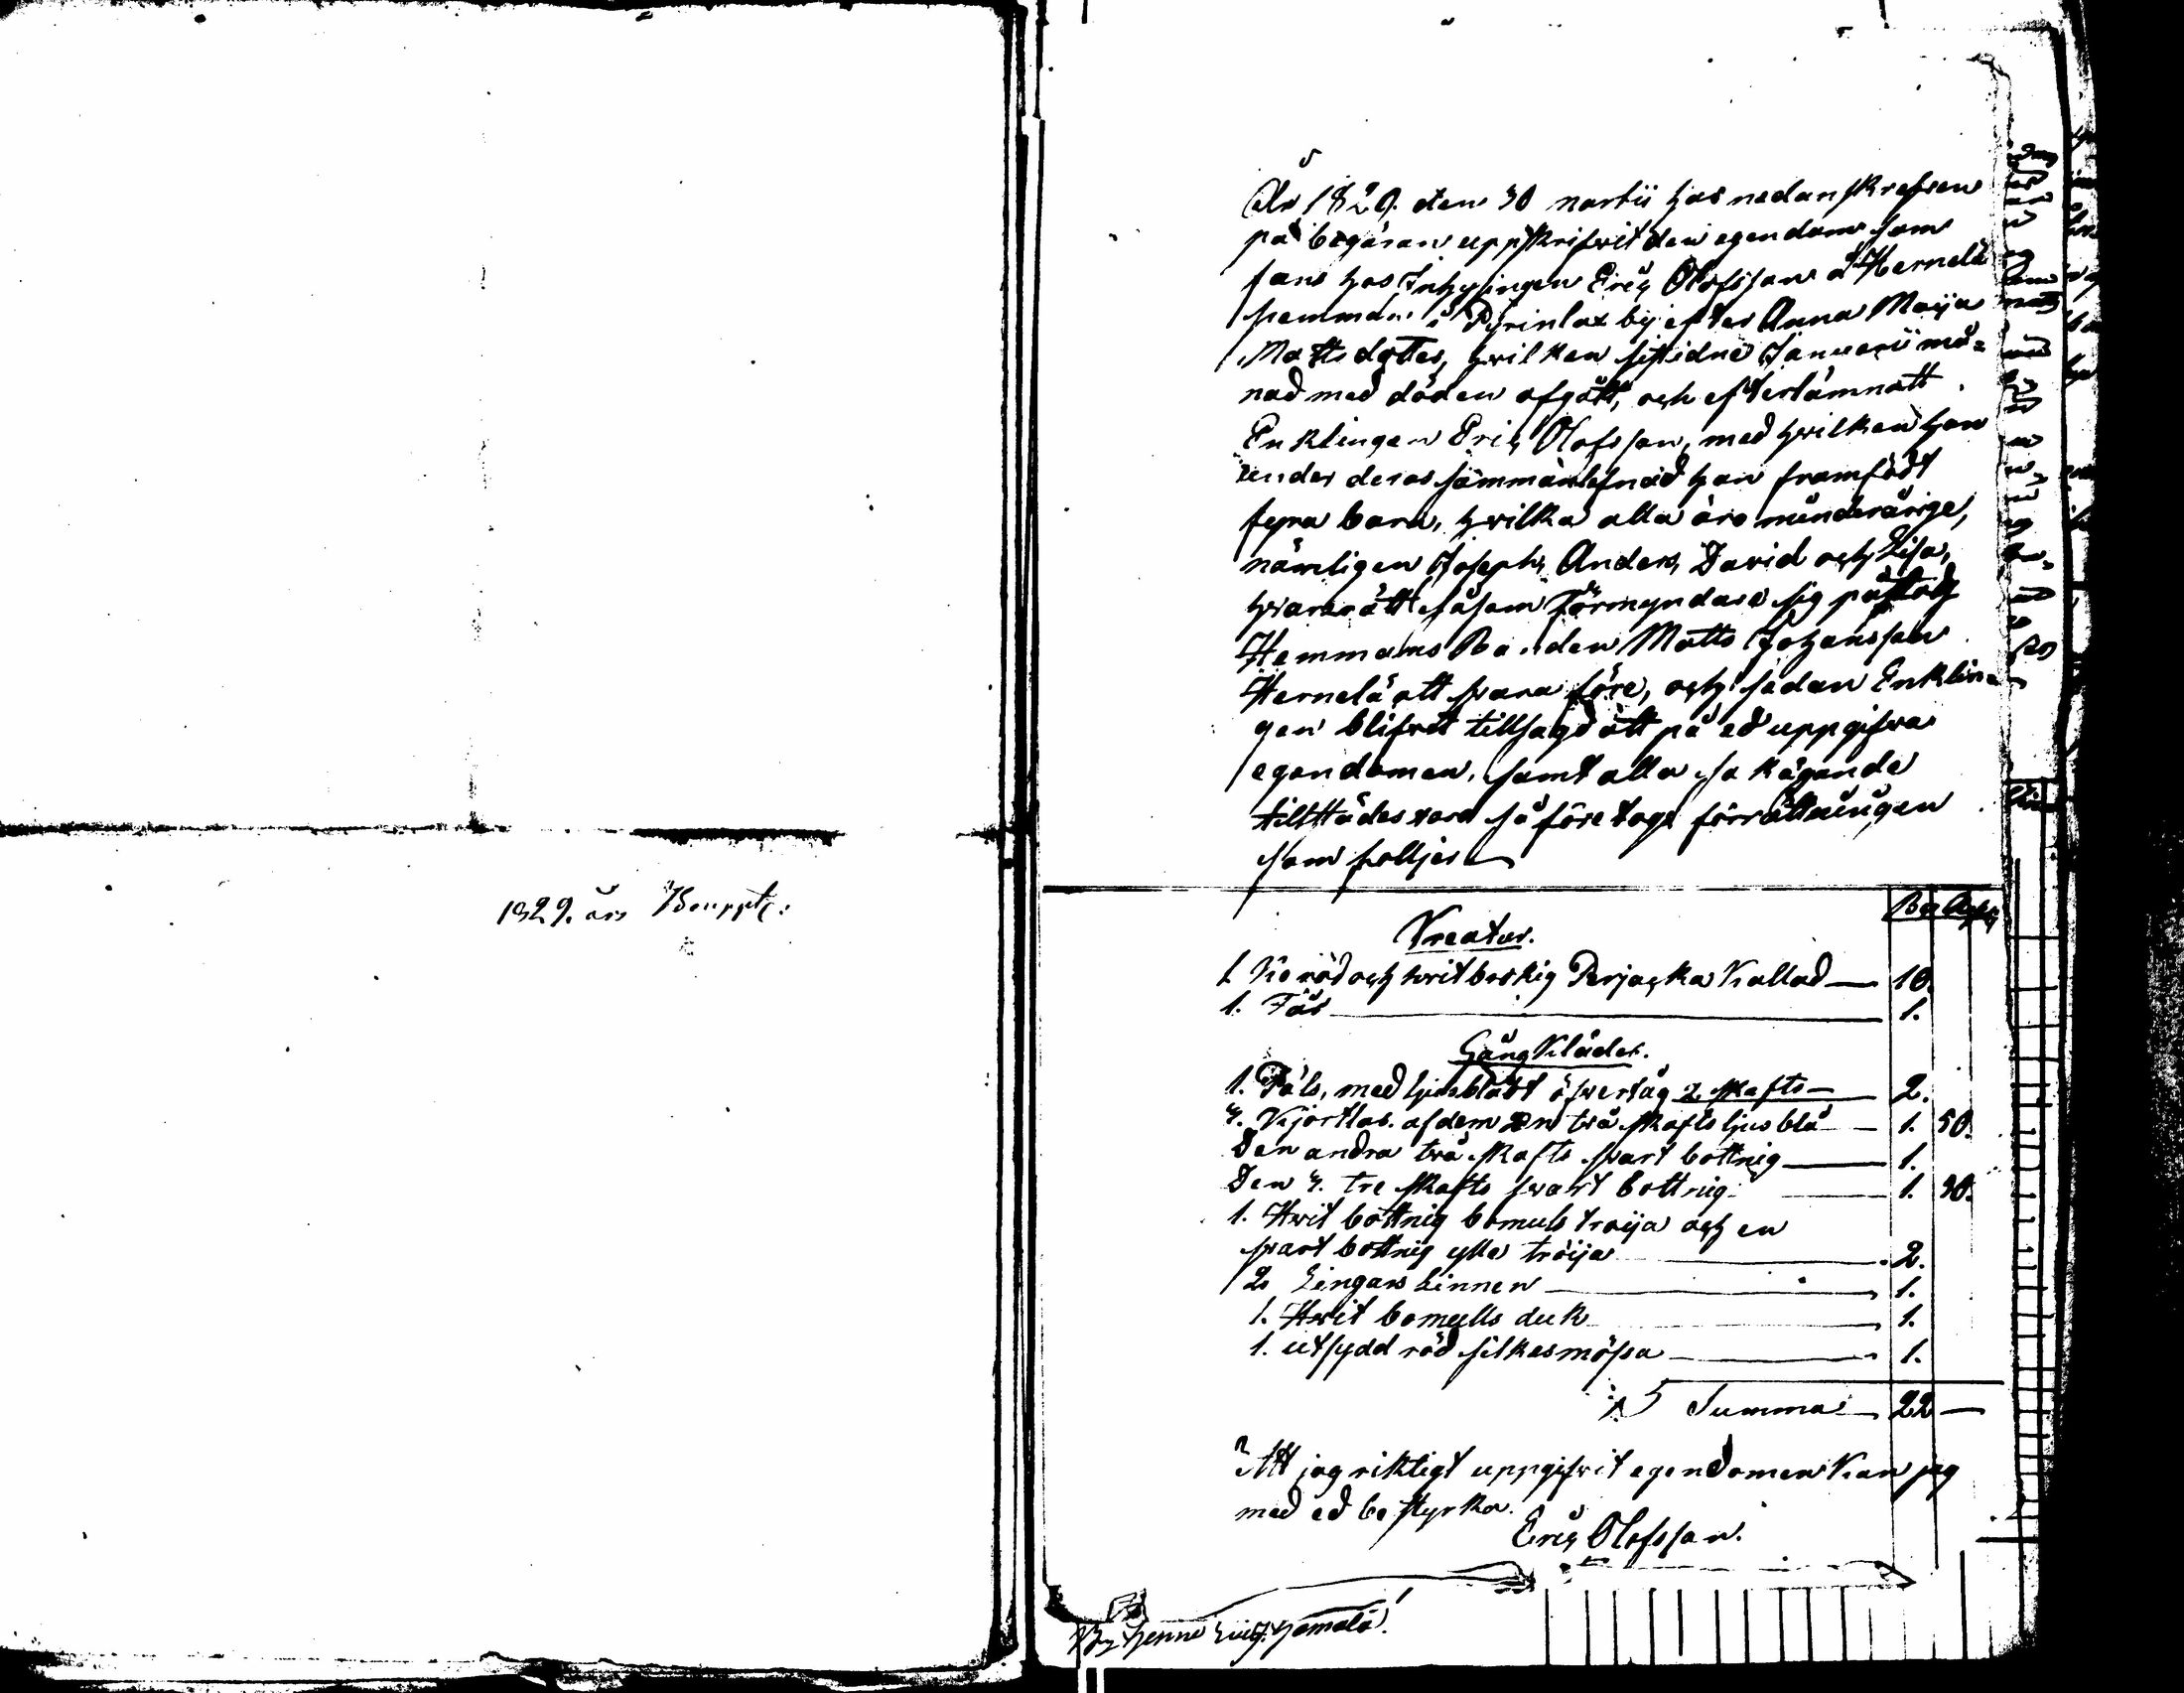 1829. års Bouppt:
År 1829. den 30 martii har nedanskrefwen
på begäran uppskrifwit den egendom som
fans hos Inhysingen Eric Olofsson å Hernelä
hemman i Pyrinlax by efter Anna Maija
Matts dotter, hwilken sistidne Januari må=
nad med döden afgått, och efterlämnatt
Enklingen Eric Olofsson, med hwilken hon
under deras sammanlefnad han framfödt
fyra barn, hwilka alla äro minderårige,
nämligen Joseph, Anders, David och Lisa,
hwars rätt såsom Förmyndare sig påstog
Hemmans Bonden Matts Johansson
Hernelä att swara före, och sedan Enklin=
gen blifwit tillsagd att på ed uppgifwa
egendomen, samt alla sakägande
tillstädes varo så företogs förrättningen
som följer
Kreatur.
1. Ko röd och hwit brokig Perjacka Kallad 10.
1. Får 1.
Gång Kläder.
1. Päls, med ljusblått öfwertåg 2 skafts 2.
3. Kjortlar. af dem en två skafts ljusblå 1. 50.
Den andra två skafts swart bottnig 1.
Den 3. tre skafts swart bottnig 1. 50.
1. Hwit bottnig bomuls tröija och en
swart bottnig ylle tröija 2.
2 Lingars Linnen 1.
1. Hwit bomulls duk 1.
1. utsydd röd silkesmössa 1.
Summa 22
Att jag riktigt uppgifwit egendomen Kan jag
med ed bestyrka.
Eric Olofsson.